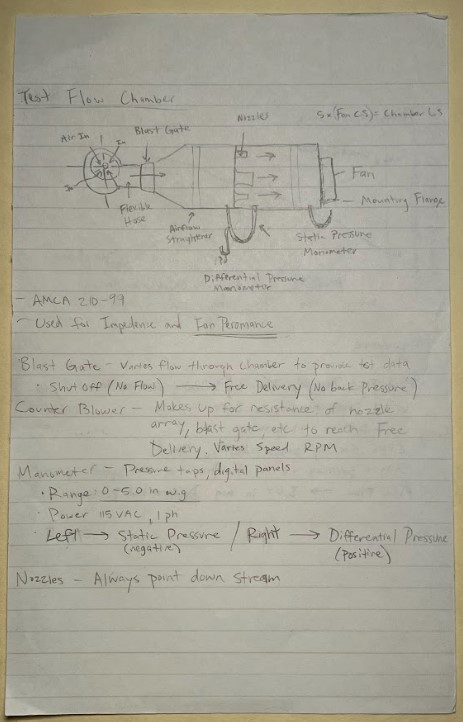 Test Flow Chamber
Nozzles
5x(Fan CS)= Chamber CS
Air In
In
Blast Gate
In
Fan
Mounting Flange
Flexible
Hose
Airflow
Straightener
Static Pressure
Manometer
Differential Pressure
Manometer
- AMCA 210-99
- Used for Impedence and Fan Peromance
Blast Gate - Varies flow through chamber to provide test data
: Shut off (No Flow) → Free Delivery (No back Pressure)
Counter Blower - Makes up for resistance of nozzle
array, blast gate etc to reach Free
Delivery. Varies Speed RPM
Manometer - Pressure taps, digital panels
• Range: 0-5.0 in w.g
• Power 115 VAC, 1 ph
• Left → Static Pressure / Right → Differential Pressure
(negative) (Positive)
Nozzles - Always point down stream